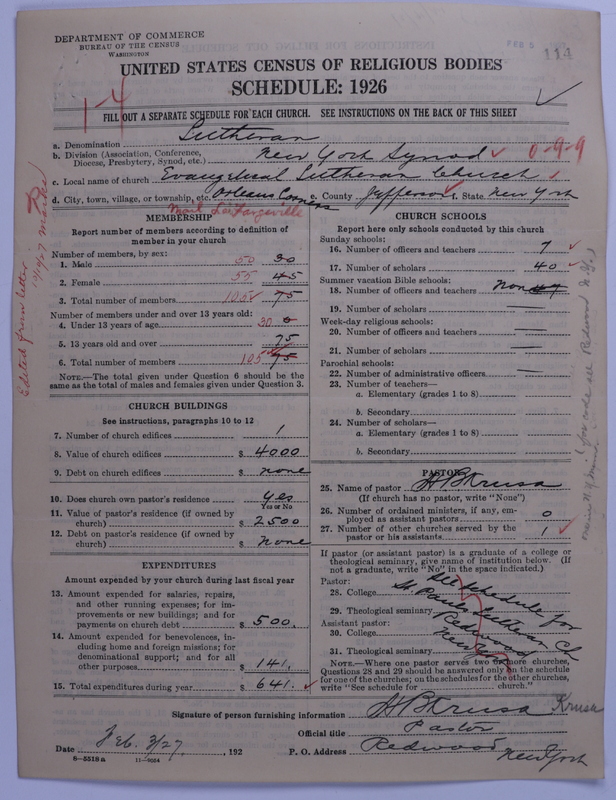 DEPARTMENT OF COMMERCE
BUREAU OF THE CENSUS
WASHINGTON
FEB 5
114
UNITED STATES CENSUS OF RELIGIOUS BODIES
SCHEDULE: 1926
1-4
FILL OUT A SEPARATE SCHEDULE FOR EACH CHURCH. SEE INSTRUCTIONS ON THE BACK OF THIS SHEET
a. Denomination Lutheran
b. Division (Association, Conference, Diocese, Presbytery, Synod, etc.) New York Synod 0-9-9
c. Local name of church Evangelical Lutheran Church
d. City, town, village, or township, etc. Orleans Corners e. County Jefferson f. State New York
Mail LaFargeville
MEMBERSHIP
Report number of members according to definition of
member in your church
Number of members, by sex:
1. Male 50 30
2. Female 55 45
3. Total number of members 105 75
Number of members under and over 13 years old:
4. Under 13 years of age 30 0
5. 13 years old and over 75
6. Total number of members 105 75
NOTE.—The total given under Question 6 should be
the same as the total of males and females given under Question 3.
CHURCH BUILDINGS
See instructions, paragraphs 10 to 12
7. Number of church edifices 1
8. Value of church edifices $ 4000
9. Debt on church edifices $ none
10. Does church own pastor's residence yes
Yes or No
11. Value of pastor's residence (if owned by
church) $ 2500
12. Debt on pastor's residence (if owned by
church) $ none
EXPENDITURES
Amount expended by your church during last fiscal year
13. Amount expended for salaries, repairs,
and other running expenses; for im-
provements or new buildings; and for
payments on church debt $ 500.
14. Amount expended for benevolences, in-
cluding home and foreign missions; for
denominational support; and for all
other purposes $ 141.
15. Total expenditures during year $ 641.
CHURCH SCHOOLS
Report here only schools conducted by this church
Sunday schools:
16. Number of officers and teachers 7
17. Number of scholars 40
Summer vacation Bible schools:
18. Number of officers and teachers none
19. Number of scholars
Week-day religious schools:
20. Number of officers and teachers
21. Number of scholars
Parochial schools:
22. Number of administrative officers
23. Number of teachers—
a. Elementary (grades 1 to 8)
b. Secondary
24. Number of scholars—
a. Elementary (grades 1 to 8)
b. Secondary
PASTOR
25. Name of pastor H B Krusa
(If church has no pastor, write "None")
26. Number of ordained ministers, if any, em-
ployed as assistant pastors 0
27. Number of other churches served by the
pastor or his assistants 1
If pastor (or assistant pastor) is a graduate of a college or
theological seminary, give name of institution below. (If
not a graduate, write "No" in the space indicated.)
Pastor:
28. College
29. Theological seminary
Assistant pastor:
30. College
31. Theological seminary
See schedule for
St. Pauls Lutheran Ch
Redwood
New York
NOTE.—Where one pastor serves two or more churches,
Questions 28 and 29 should be answered only on the schedule
for one of the churches; on the schedules for the other churches,
write "See schedule for church."
Signature of person furnishing information H B Krusa Krusa
Official title Pastor
Date Feb. 3/27, 192
P. O. Address Redwood New York
8-5518a 11-9054
Edited from letter